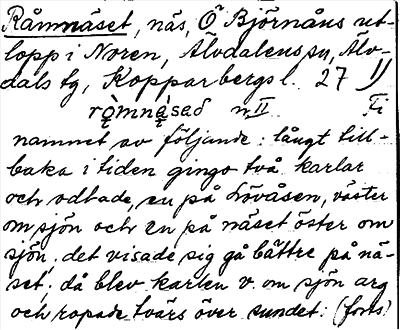 Råmnäset, näs, Ö Björnåns ut-
lopp i Noren, Älvdalens sn, Älv-
dals tg, Kopparbergs l. 27 1)
ro̠mnäsəð n. II Ti
namnet av följande: långt till-
baka i tiden gingo två karlar
och odlade, en på Lövåsen, väster
om sjön och en på näset öster om
sjön, det visade sig gå bättre på nä-
set, då blev karlen v. om sjön arg
och ropade tvärs över sundet: (forts)